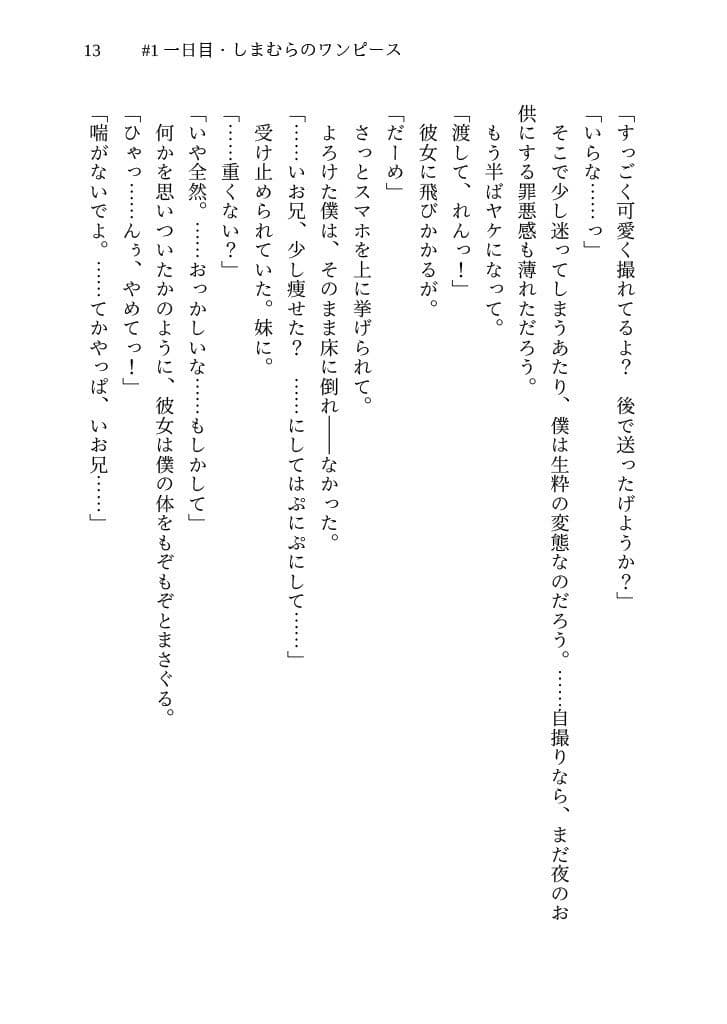 13 #1 一日目・しまむらのワンピース
「すっごく可愛く撮れてるよ？　後で送ったげようか？」
「いらな……っ」
　そこで少し迷ってしまうあたり、僕は生粋の変態なのだろう。……自撮りなら、まだ夜のお
供にする罪悪感も薄れただろう。
　もう半ばヤケになって。
「渡して、れんっ！」
　彼女に飛びかかるが。
「だーめ」
　さっとスマホを上に挙げられて。
　よろけた僕は、そのまま床に倒れ――なかった。
「……いお兄、少し痩せた？　……にしてはぷにぷにして……」
　受け止められていた。妹に。
「……重くない？」
「いや全然。……おっかしいな……もしかして」
　何かを思いついたかのように、彼女は僕の体をもぞもぞとまさぐる。
「ひゃっ……んぅ、やめてっ！」
「喘がないでよ。……てかやっぱ、いお兄……」